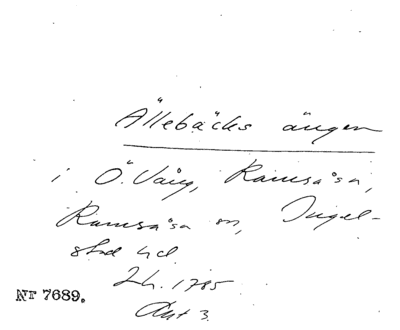 Ällebäcks ängen
i Ö. Vång, Ramsåsa,
Ramsåsa sn, Ingel-
stad hd.
Lh. 1785
Akt 3.
Nr 7689.